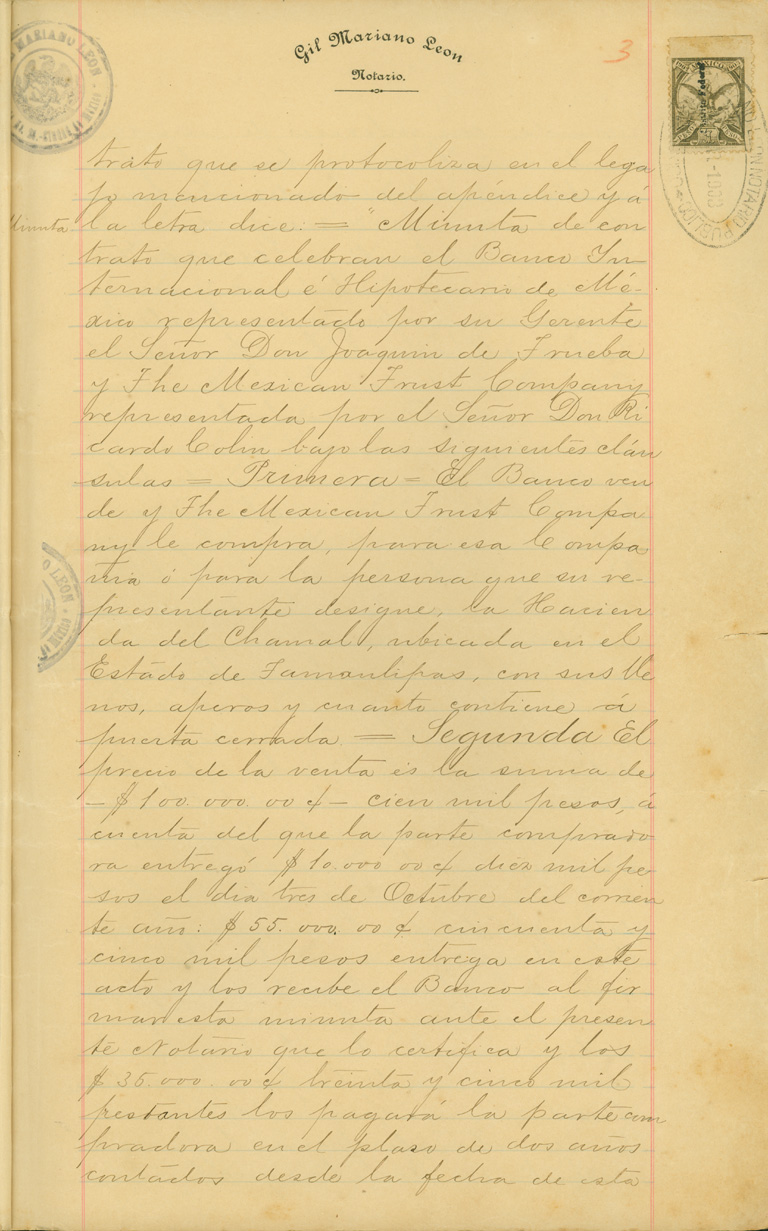 Gil Mariano Leon
Notario.
3
MARIANO LEON
trato que se protocoliza en el lega
jo mencionado del apéndice y á
Minuta
la letra dice: = "Minuta de con
trato que celebran el Banco In-
ternacional é Hipotecario de Mé-
xico representado por su Gerente
el Señor Don Joaquin de Trueba
y The Mexican Trust Company
representada por el Señor Don Ri
cardo Colin bajo las siguientes cláu
sulas = Primera = El Banco ven
de y The Mexican Trust Compa
ny le compra, para esa Compa
ñia ó para la persona que su re-
presentante designe, la Hacien
da del Chamal, ubicada en el
Estado de Tamaulipas, con sus lle
nos, aperos y cuanto contiene á
puerta cerrada = Segunda El
precio de la venta es la suma de
- $100.000.00 ¢ - cien mil pesos, á
cuenta del que la parte comprado
ra entregó $10.000 00 ¢ diez mil pe-
sos el dia tres de Octubre del corrien
te año: $55.000.00 ¢ cincuenta y
cinco mil pesos entrega en este
acto y los recibe el Banco al fir
mar esta minuta ante el presen
te Notario que lo certifica y los
$35.000.00 ¢ treinta y cinco mil
restantes los pagará la parte com
pradora en el plazo de dos años
contados desde la fecha de esta